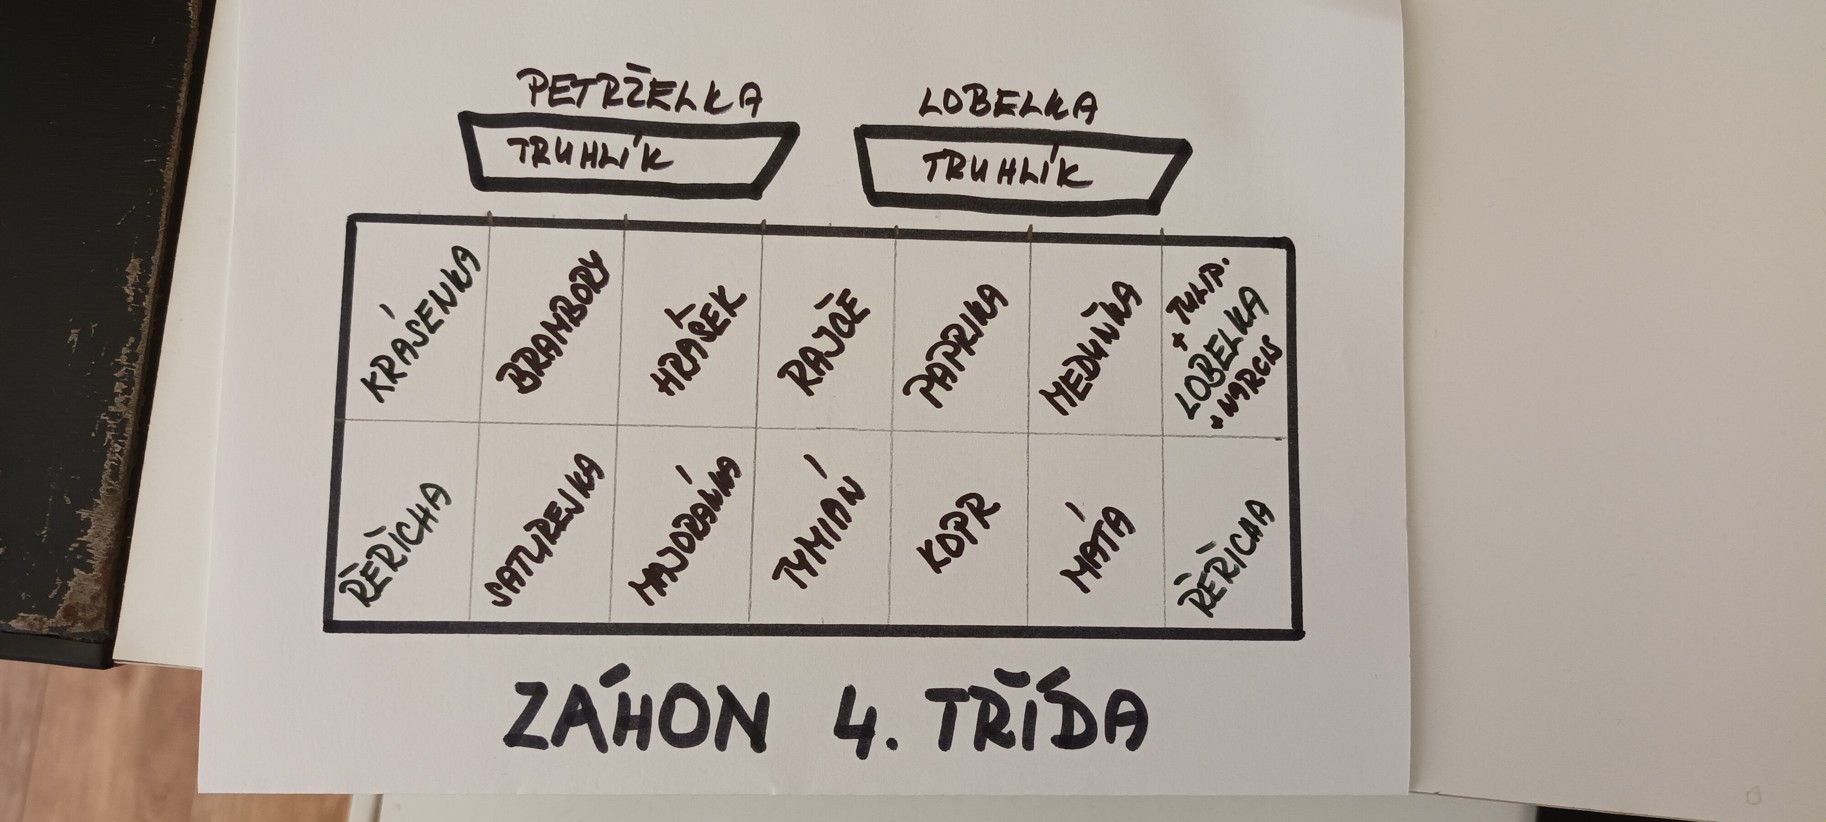 PETRŽELKA
TRUHLÍK
LOBELKA
TRUHLÍK
KRÁSENKA
BRAMBORY
HRÁŠEK
RAJČE
PAPRIKA
MEDUŇKA
+ TULIP.
LOBELKA
+ NARCIS
ŘEŘICHA
SATUREJKA
MAJORÁNKA
TYMIÁN
KOPR
MÁTA
ŘEŘICHA
ZÁHON 4. TŘÍDA